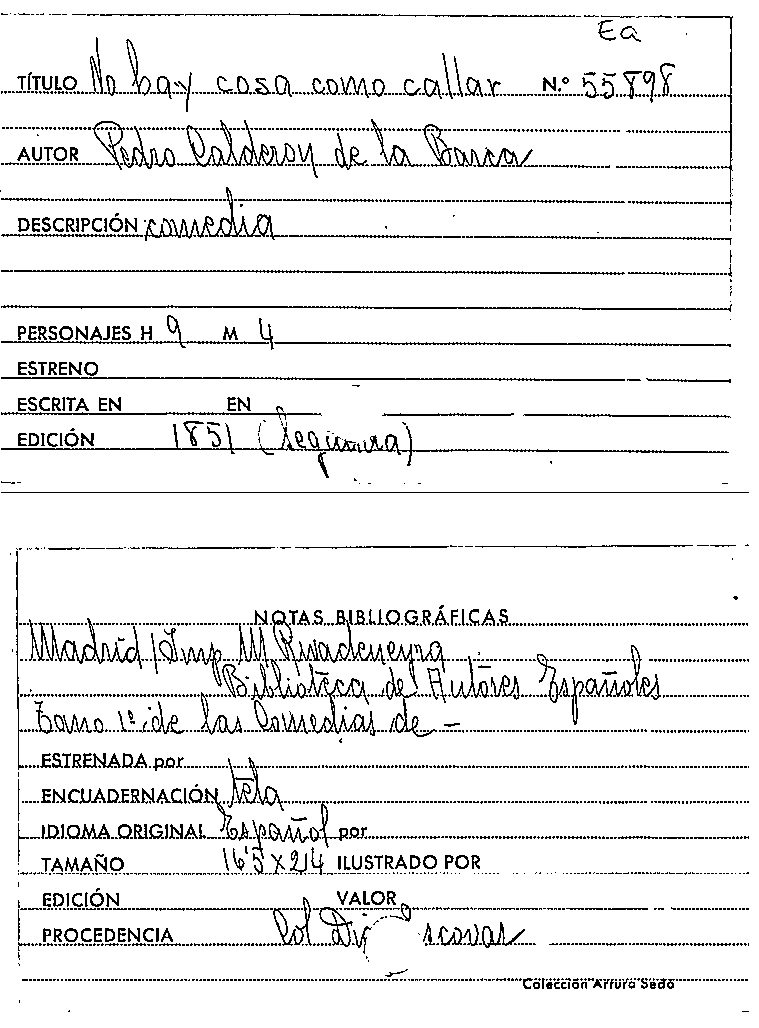 Ea
TÍTULO No hay cosa como callar N.º 55898
AUTOR Pedro Calderon de la Barca
DESCRIPCIÓN comedia
PERSONAJES H 9 M 4
ESTRENO
ESCRITA EN EN
EDICIÓN 1851 (Segunda)
NOTAS BIBLIOGRÁFICAS
Madrid / Imp M Rivadeneyra
Biblioteca de Autores Españoles
Tomo 1º de las Comedias de —
ESTRENADA por
ENCUADERNACIÓN tela
IDIOMA ORIGINAL Español por
TAMAÑO 16'5 x 24 ILUSTRADO POR
EDICIÓN VALOR
PROCEDENCIA Col
Colección Arturo Sedó